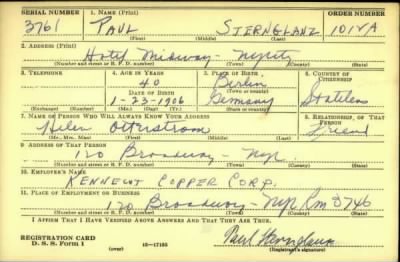 SERIAL NUMBER 1. NAME (Print) ORDER NUMBER
3761 PAUL STERNGLANZ 10124A
(First) (Middle) (Last)
2. ADDRESS (Print)
Hotel Midway - NYCity
(Number and street or R. F. D. number) (Town) (County) (State)
3. TELEPHONE 4. AGE IN YEARS 5. PLACE OF BIRTH 6. COUNTRY OF CITIZENSHIP
40 Berlin
DATE OF BIRTH (Town or county)
1-23-1906 Germany Stateless
(Exchange) (Number) (Mo.) (Day) (Yr.) (State or country)
7. NAME OF PERSON WHO WILL ALWAYS KNOW YOUR ADDRESS 8. RELATIONSHIP OF THAT PERSON
Helen Friend
(Mr., Mrs., Miss) (First) (Middle) (Last)
9. ADDRESS OF THAT PERSON
120 Broadway - NYC
(Number and street or R. F. D. number) (Town) (County) (State)
10. EMPLOYER'S NAME
KENNECUT COPPER CORP.
11. PLACE OF EMPLOYMENT OR BUSINESS
120 Broadway - NYC Rm 2746
(Number and street or R. F. D. number) (Town) (County) (State)
I AFFIRM THAT I HAVE VERIFIED ABOVE ANSWERS AND THAT THEY ARE TRUE.
REGISTRATION CARD
D. S. S. Form 1 (over) 16-17105 Paul Sternglanz
(Registrant's signature)